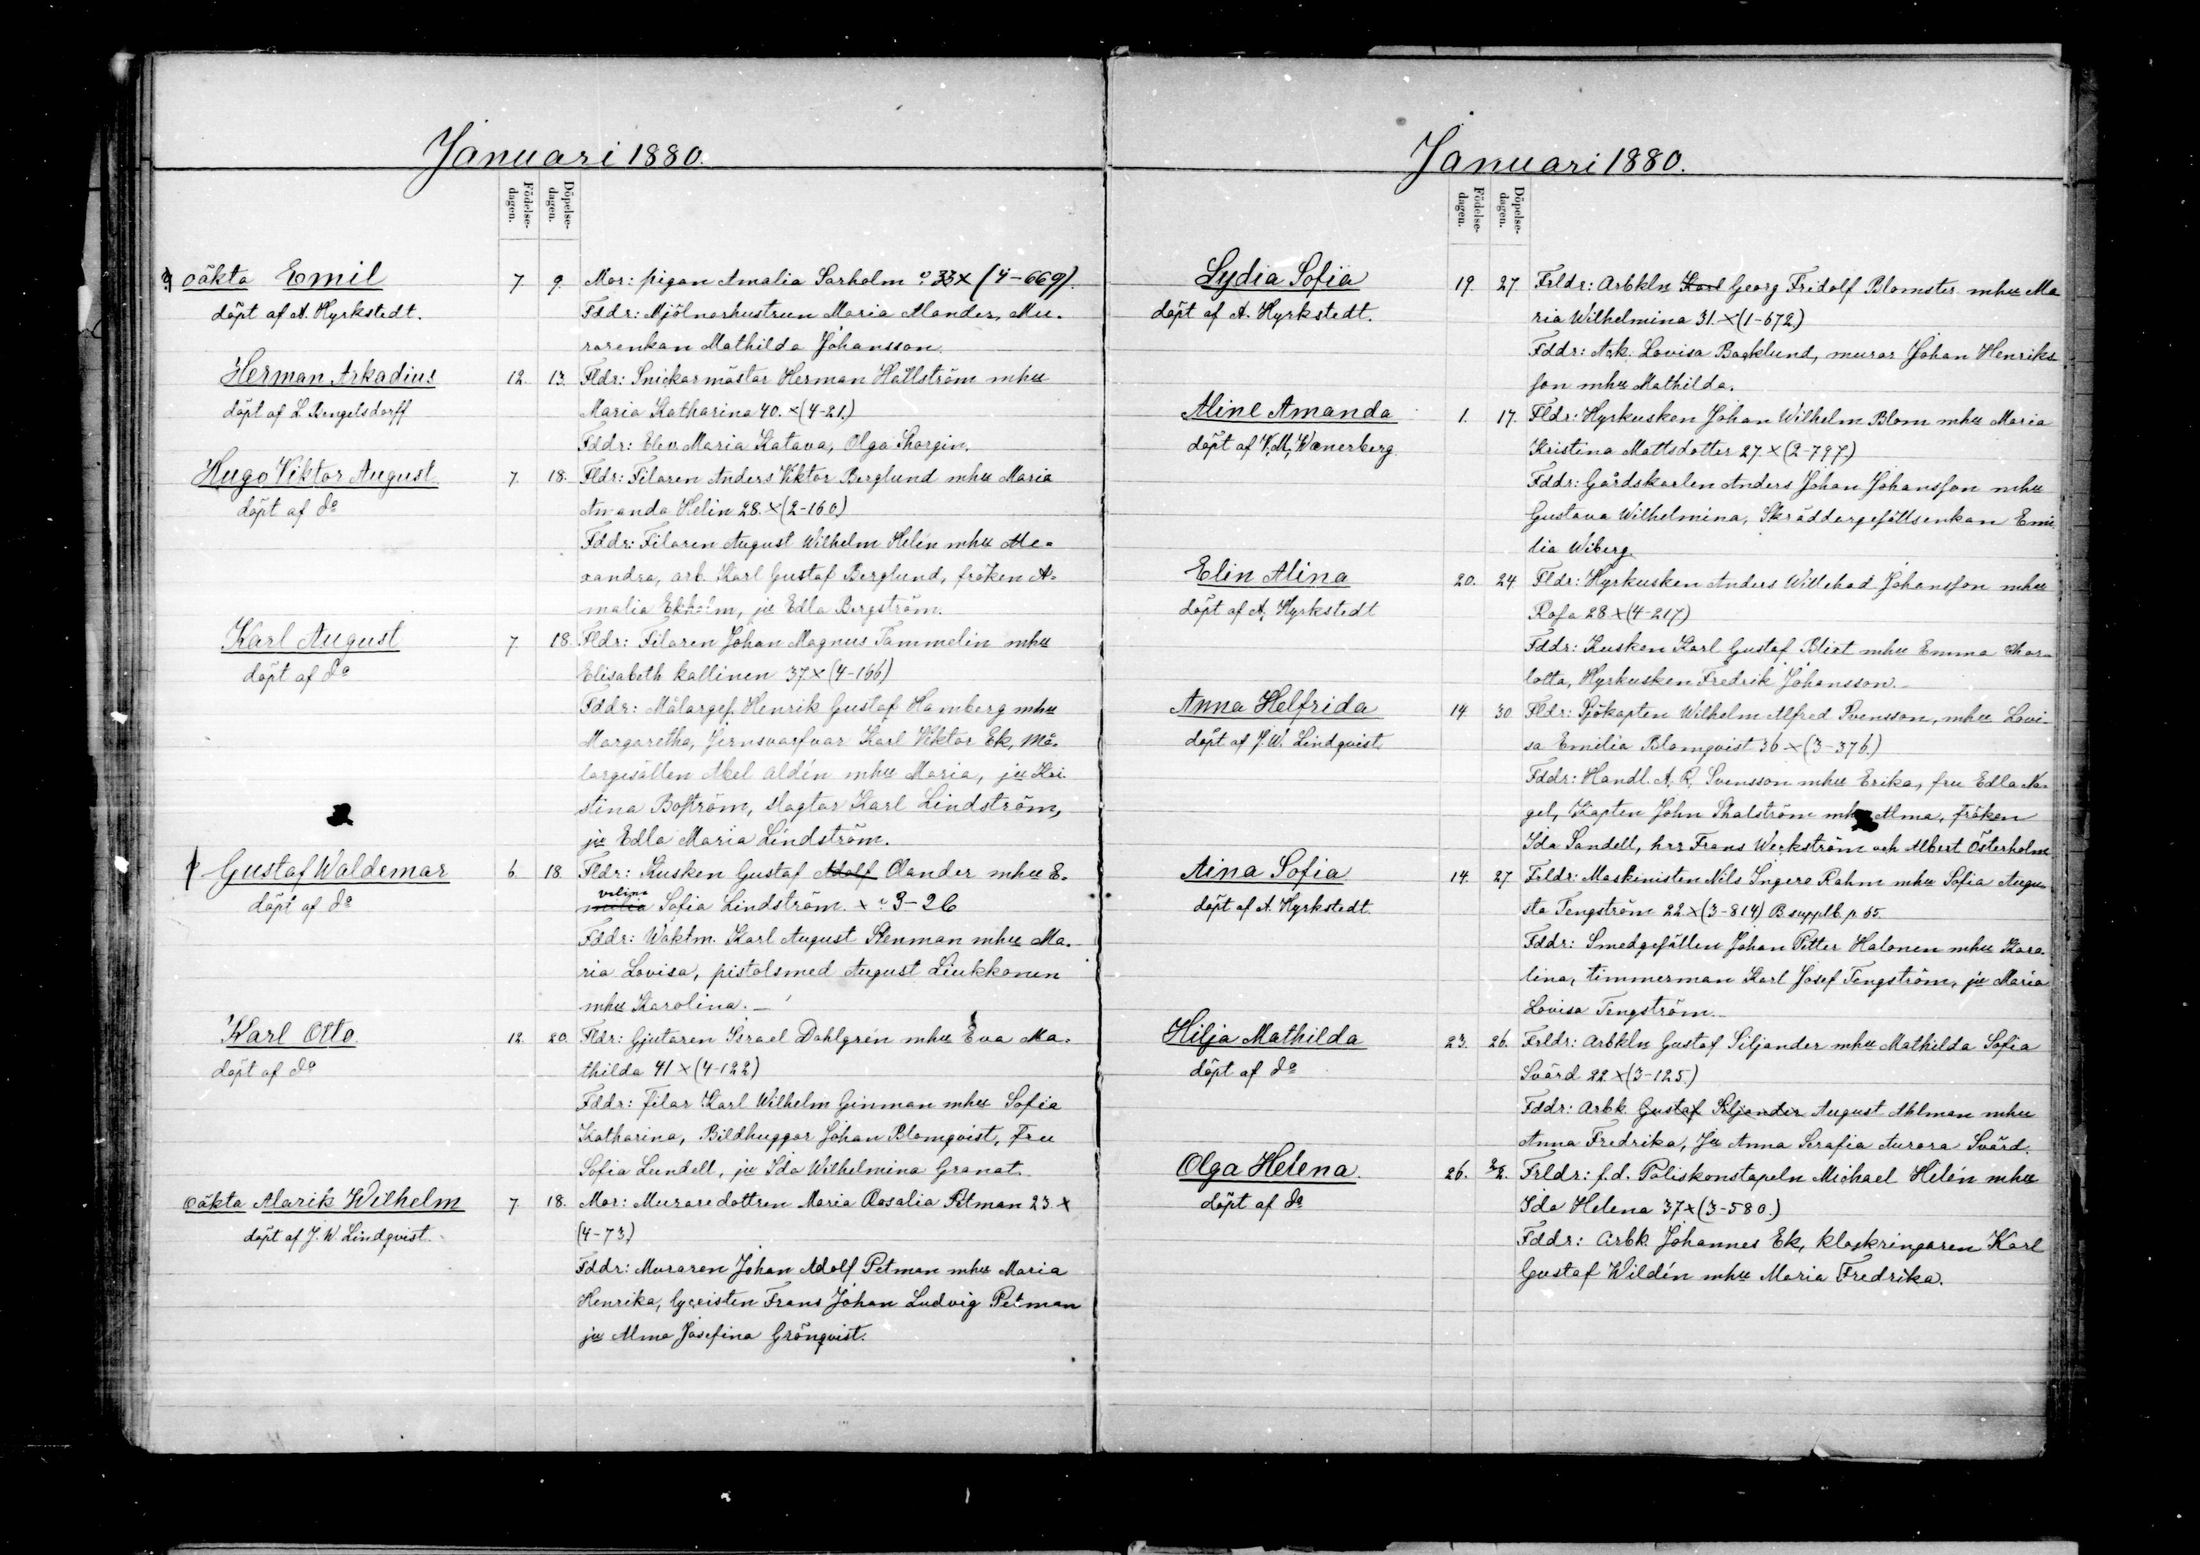 Januari 1880.
Födelse-dagen.
Döpelse-dagen.
oäkta Emil 7 9 Mor: pigan Amalia Sarholm 33 x (4-669).
döpt af A. Hyrkstedt. Fddr: Mjölnarhustrun Maria Mander, Mu-
rarenkan Mathilda Johansson.
Herman Arkadius 12. 13. Fldr: Snickarmästar Herman Hällström mhu
döpt af L. Bengelsdorff Maria Katharina 40. x (4-21.)
Fddr: Elev Maria Katava, Olga Shorgin.
Hugo Viktor August 7. 18. Fldr: Filaren Anders Viktor Berglund mhu Maria
döpt af do Amanda Helin 28. x (2-160)
Fddr: Filaren August Wilhelm Helin mhu Ale-
xandra, arb. Karl Gustaf Berglund, fröken A-
malia Ekholm, ju Edla Bergström.
Karl August 7. 18. Fldr: Filaren Johan Magnus Tammelin mhu
döpt af do Elisabeth Kallinen 37 x (4-166)
Fddr: Målargef. Henrik Gustaf Hamberg mhu
Margaretha, Jernsvarfvar Karl Viktor Ek, Må-
largesällen Axel Aldén mhu Maria, ju Kri-
stina Boström, slagtar Karl Lindström,
ju Edla Maria Lindström.
Gustaf Waldemar 6. 18 Fldr: Kusken Gustaf Adolf Olander mhu E-
velina
döpt af do milia Sofia Lindström. x 3-26
Fddr: Waktm. Karl August Stenman mhu Ma-
ria Lovisa, pistolsmed August Liukkonen
mhu Karolina. -
Karl Otto 12. 20. Fldr: Gjutaren Israel Dahlgrén mhu Eva Ma-
döpt af do thilda 41 x (4-122)
Fddr: filar Karl Wilhelm Ginman mhu Sofia
Katharina, Bildhuggar Johan Blomqvist, Fru
Sofia Lundell, ju Ida Wilhelmina Granat.
oäkta Alarik Wilhelm 7. 18. Mor: Muraredottren Maria Rosalia Petman 23. x
döpt af J. W. Lindqvist. (4-73.)
Fddr: Muraren Johan Adolf Petman mhu Maria
Henrika, lyceisten Frans Johan Ludvig Petman
ju Alma Josefina Grönqvist.
Januari 1880.
Födelse-dagen.
Döpelse-dagen.
Lydia Sofia 19. 27. Frldr: Arbkln Karl Georg Fridolf Blomster mhu Ma
döpt af A. Hyrkstedt. ria Wilhelmina 31. x (1-672)
Fddr: Ark. Lovisa Backlund, murar Johan Henriks
son mhu Mathilda.
Aline Amanda 1. 17. Fldr: Hyrkusken Johan Wilhelm Blom mhu Maria
döpt af V. M. Wenerberg Kristina Mattsdotter 27 x (2-797)
Fddr: Gårdskarlen Anders Johan Johansson mhu
Gustava Wilhelmina, Skräddergesällsenkan Emi
lia Wiberg
Elin Alina 20. 24 Fldr: Hyrkusken Anders Willehad Johansson mhu
döpt af A. Hyrkstedt Rosa 28 x (4-217)
Fddr: Kusken Karl Gustaf Blixt mhu Emma Char-
lotta, Hyrkusken Fredrik Johansson. -
Anna Helfrida 14 30 Fldr: Sjökapten Wilhelm Alfred Svensson, mhu Lovi-
döpt af J. W. Lindqvist sa Emilia Blomqvist 36 x (3-376.)
Fddr: Handl. A. R. Svensson mhu Erika, fru Edla Na-
gel, Kapten John Stalström mhu Alma, Fröken
Ida Sandell, hrr Frans Weckström och Albert Österholm
Aina Sofia 14. 27 Frldr: Maskinisten Nils Ingero Rahm mhu Sofia Augu-
döpt af A. Hyrkstedt. sta Tengström 22. x (3-814) B supplb. p. 65.
Fddr: Smedgesällen Johan Petter Halonen mhu Karo-
lina, timmerman Karl Josef Tengström, ju Maria
Lovisa Tengström. -
Hilja Mathilda 23. 26. Frldr: Arbkln Gustaf Siljander mhu Mathilda Sofia
döpt af do Svärd 22 x (3-125.)
Fddr: Arbk. Gustaf Siljander August Ahlman mhu
Anna Fredrika, Ju Anna Serafia Aurora Svärd.
Olga Helena. 26. Frldr: f.d. Poliskonstapeln Michael Helén mhu
döpt af do Ida Helena 37 x (3-580.)
Fddr: Arbk. Johannes Ek, klockringaren Karl
Gustaf Wildén mhu Maria Fredrika.